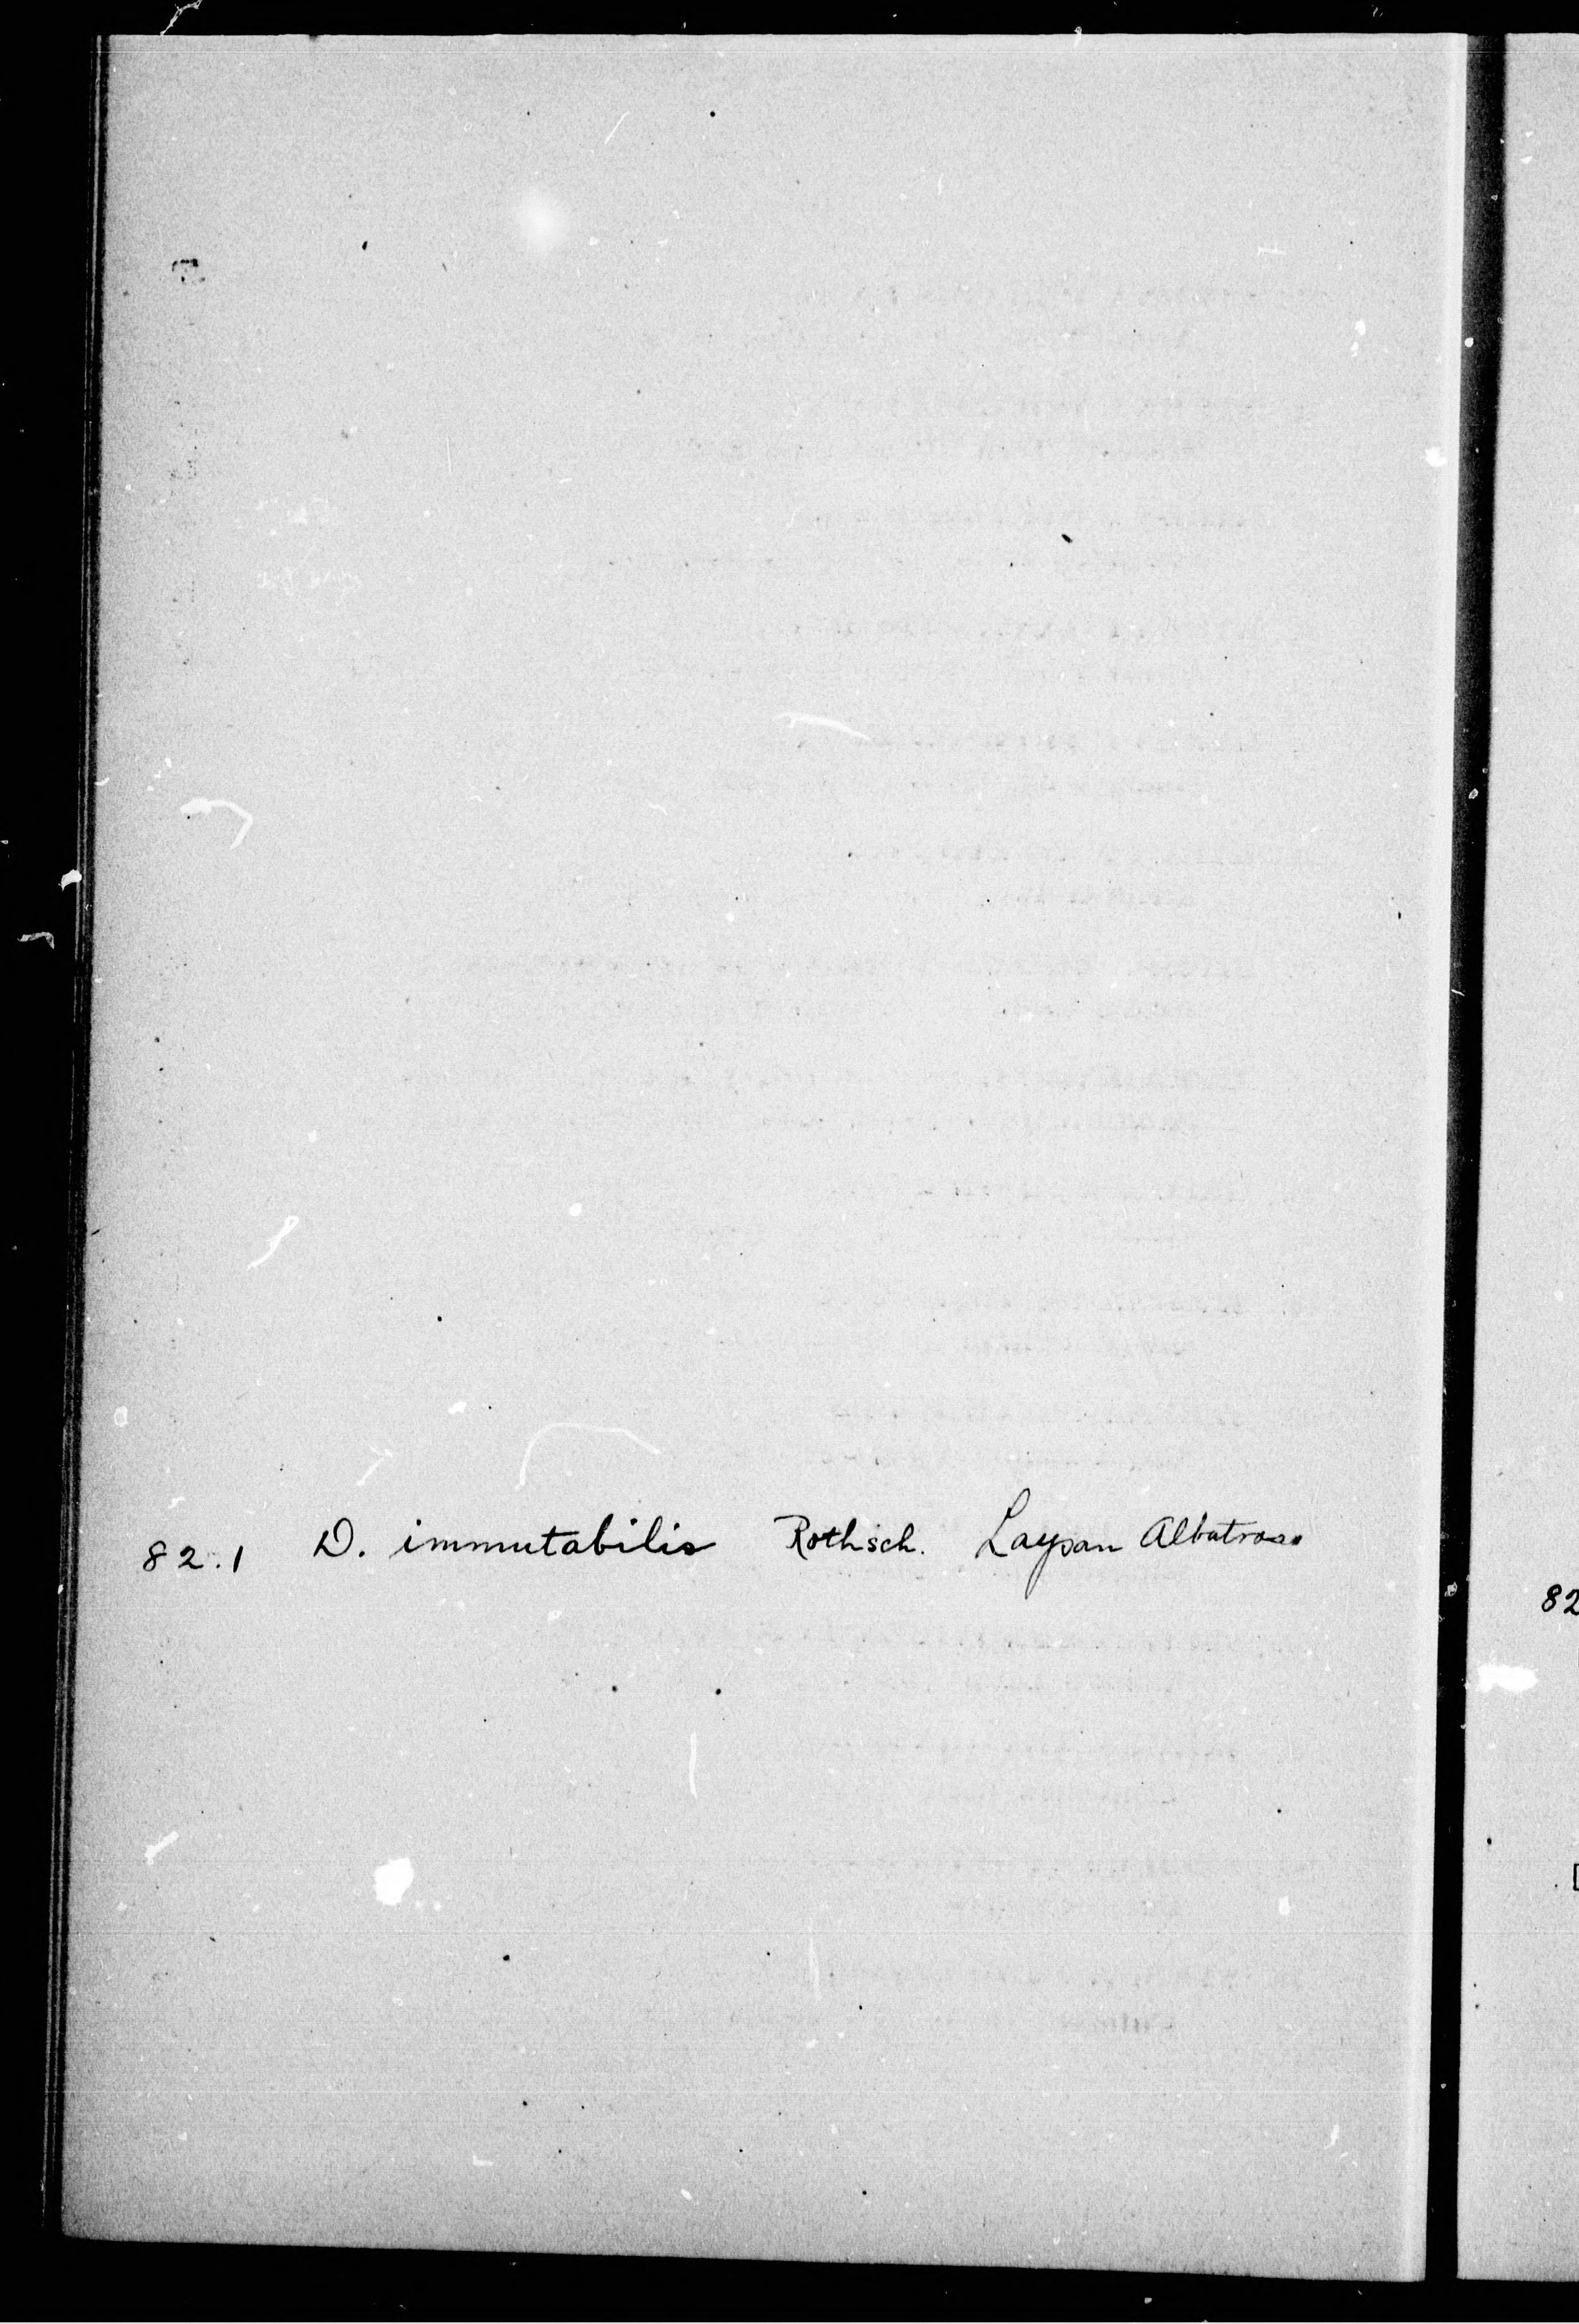 82.1 D. immutabilis Rothsch. Laysan Albatross
82
[